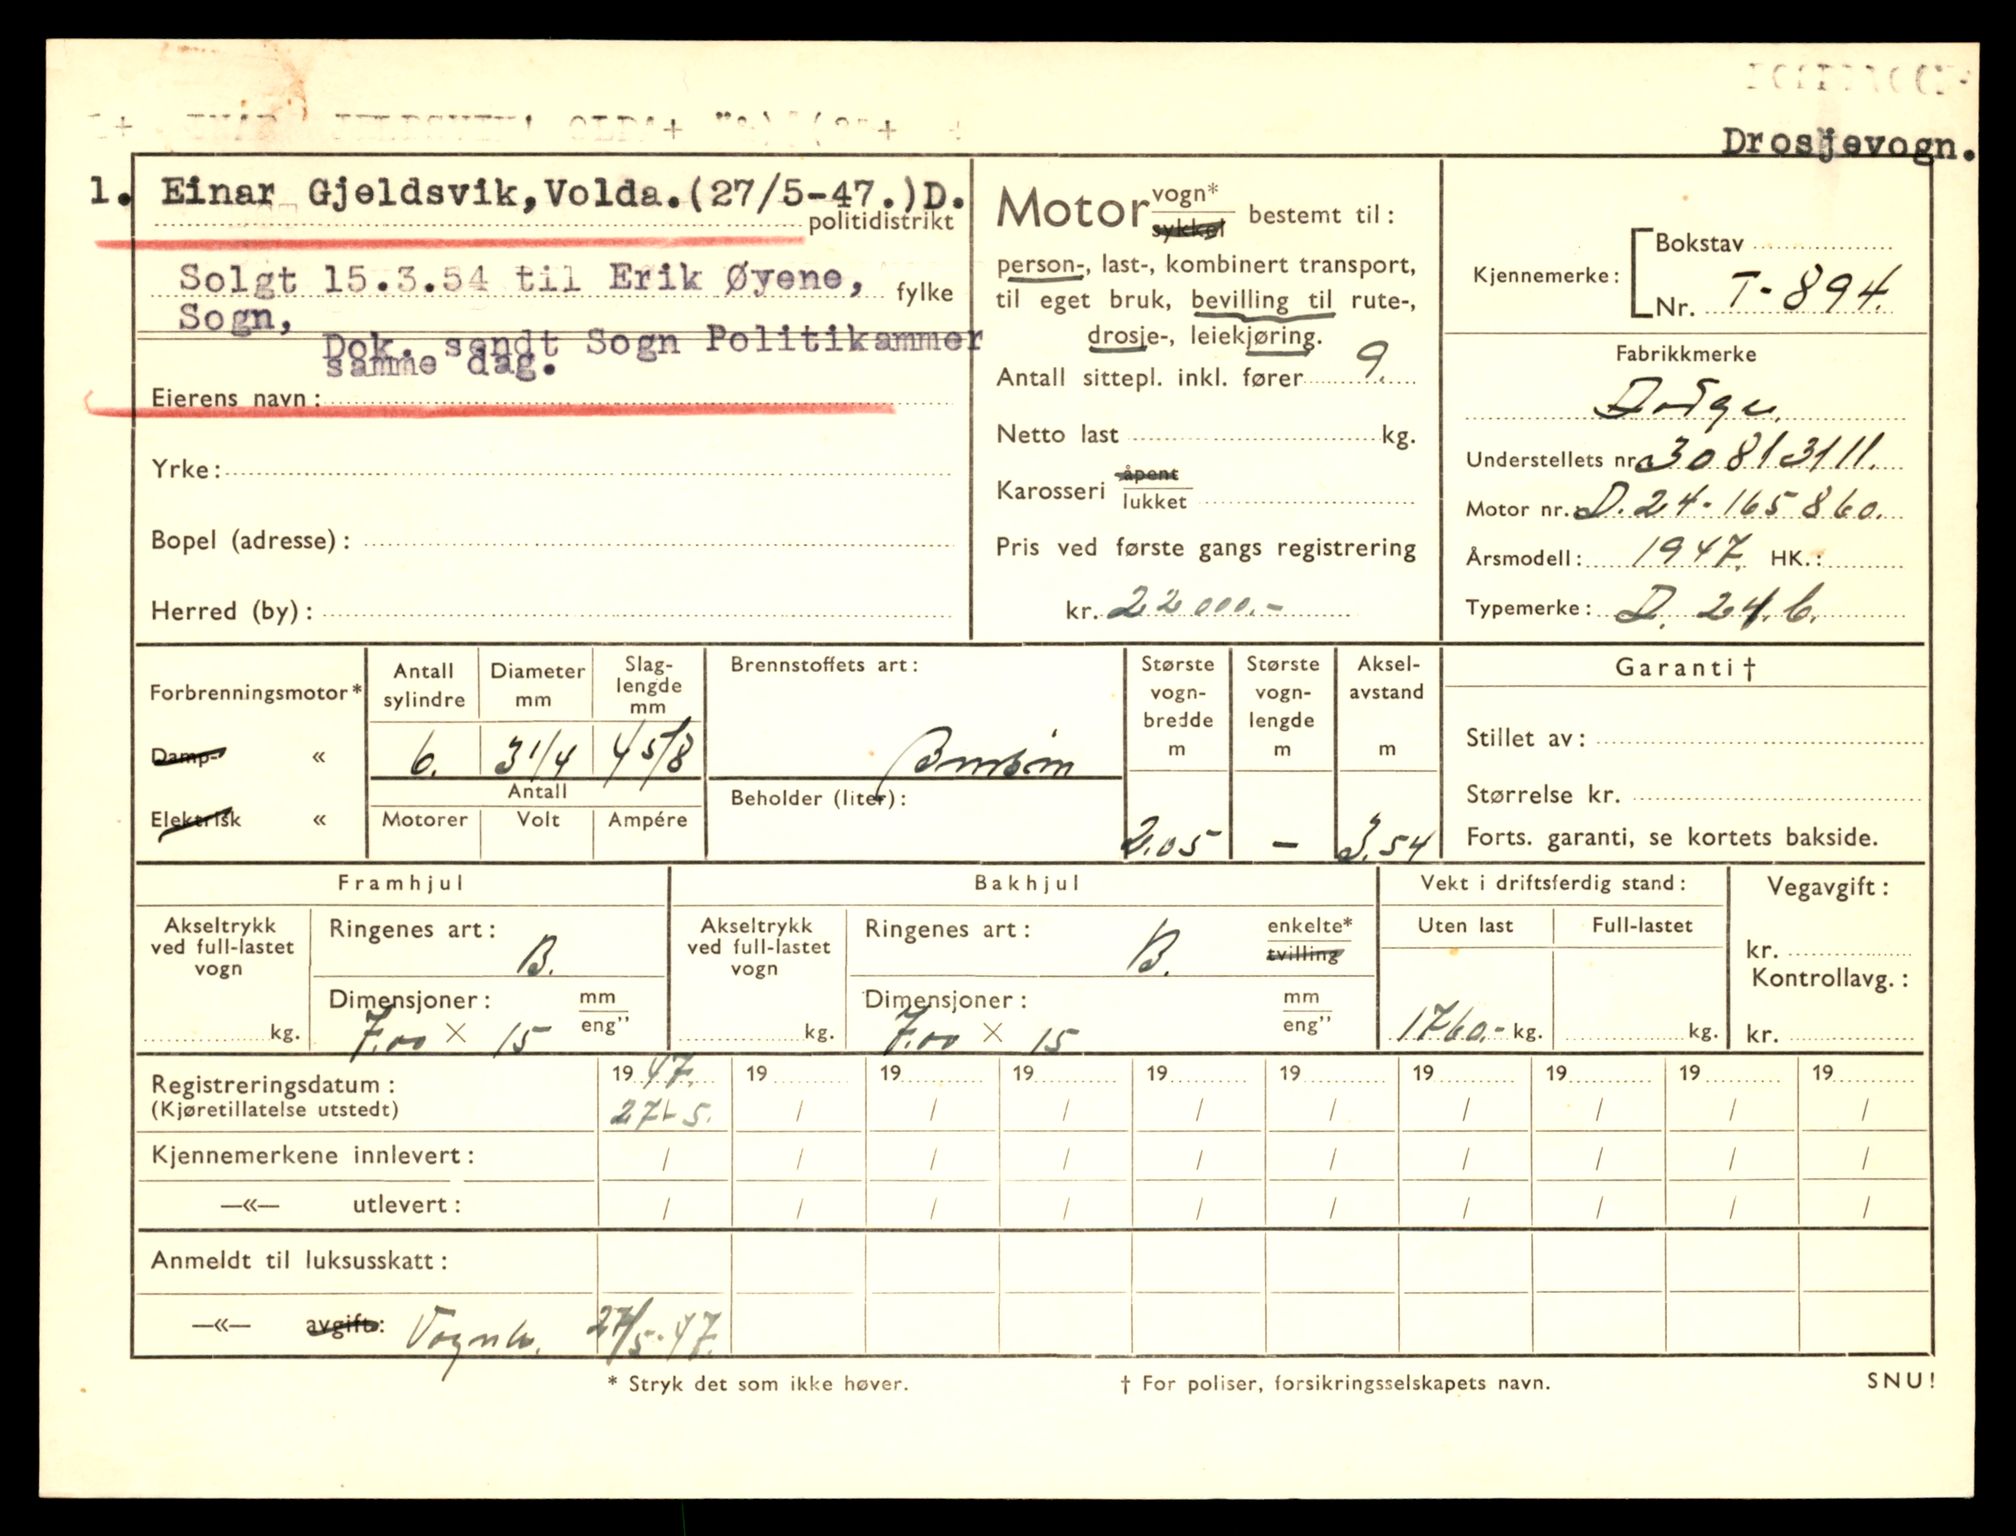 Drosjevogn.
1. Einar Gjeldsvik, Volda. (27/5-47.) D.
politidistrikt
Solgt 15.3.54 til Erik Øyene,
fylke
Sogn,
Dok. sendt Sogn Politikammer
samme dag.
Eierens navn:
Yrke:
Bopel (adresse):
Herred (by):
Motor vogn*
sykkel
bestemt til:
person-, last-, kombinert transport,
til eget bruk, bevilling til rute-,
drosje-, leiekjøring.
Antall sittepl. inkl. fører 9.
Netto last kg.
Karosseri åpent
lukket
Pris ved første gangs registrering
kr. 22000.-
Kjennemerke: Bokstav
Nr. T-894.
Fabrikkmerke
Dodge.
Understellets nr. 30813111.
Motor nr. D.24-165860.
Årsmodell: 1947. HK.:
Typemerke: D. 24.C.
Forbrenningsmotor*
Damp- «
Elektrisk «
Antall sylindre
6.
Diameter mm
3 1/4
Slag-
lengde
mm
4 5/8
Antall
Motorer Volt Ampére
Brennstoffets art:
Bensin
Beholder (liter):
Største
vogn-
bredde
m
2.05
Største
vogn-
lengde
m
-
Aksel-
avstand
m
3.54
Garanti †
Stillet av:
Størrelse kr.
Forts. garanti, se kortets bakside.
Framhjul
Akseltrykk
ved full-lastet
vogn
kg.
Ringenes art:
B.
Dimensjoner: mm
eng"
7.00 × 15
Bakhjul
Akseltrykk
ved full-lastet
vogn
kg.
Ringenes art: enkelte*
B. tvilling
Dimensjoner: mm
eng"
7.00 × 15
Vekt i driftsferdig stand:
Uten last Full-lastet
1760.- kg. kg.
Vegavgift:
kr.
Kontrollavg.:
kr.
Registreringsdatum: 19 47. 19 19 19 19 19 19 19 19 19
(Kjøretillatelse utstedt) 27/-5. / / / / / / / / /
Kjennemerkene innlevert: / / / / / / / / / /
—«— utlevert: / / / / / / / / / /
Anmeldt til luksusskatt:
—«— avgift: 27/5-47.
* Stryk det som ikke høver.
† For poliser, forsikringsselskapets navn.
SNU!